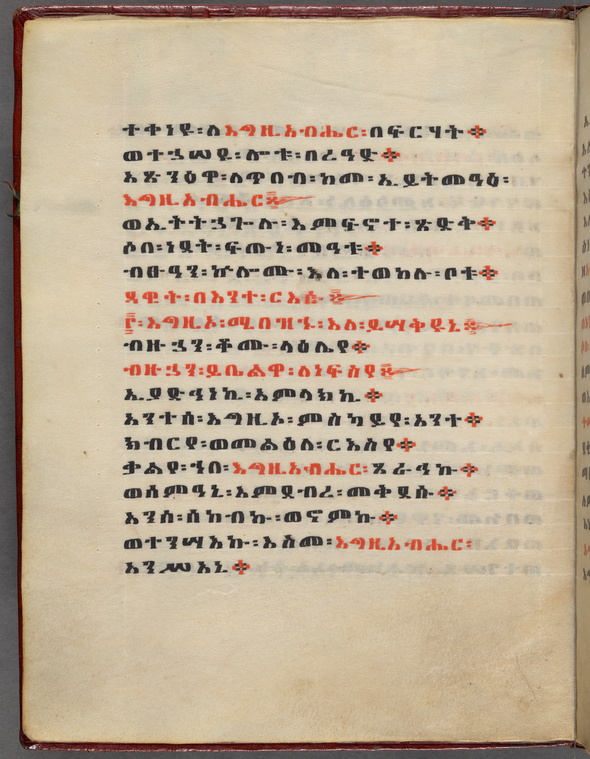 ተቀነዩ፡ለእግዚአብሔር፡በፍርሃት፨
ወተኃሠዩ፡ሎቱ፡በረዓድ፨
አጽንዕዋ፡ለጥበብ፡ከመ፡ኢይትመዓዕ፡
እግዚአብሔር፨
ወኢትትኃጐሉ፡እምፍኖተ፡ጽድቅ፨
ሶበ፡ነደት፡ፍጡነ፡መዓቱ፨
ብፁዓን፡ኵሎሙ፡እለ፡ተወከሉ፡ቦቱ፨
ዳዊት፡በእንተ፡ርእሱ፨
፫፡እግዚኦ፡ሚበዝኁ፡እለ፡ይሣቅዩኒ፨
ብዙኃን፡ቆሙ፡ላዕሌየ፨
ብዙኃን፡ይቤልዋ፡ለነፍስየ፨
ኢያድኅነኪ፡አምላክኪ፨
አንተሰ፡እግዚኦ፡ምስካይየ፡አንተ፨
ክብርየ፡ወመልዕለ፡ርእስየ፨
ቃልየ፡ኀበ፡እግዚአብሔር፡ጸራኅኩ፨
ወሰምዓኒ፡እምደብረ፡መቅደሱ፨
አንሰ፡ሰከብኩ፡ወኖምኩ፨
ወተንሣእኩ፡እስመ፡እግዚአብሔር፡
አንሥአኒ፨